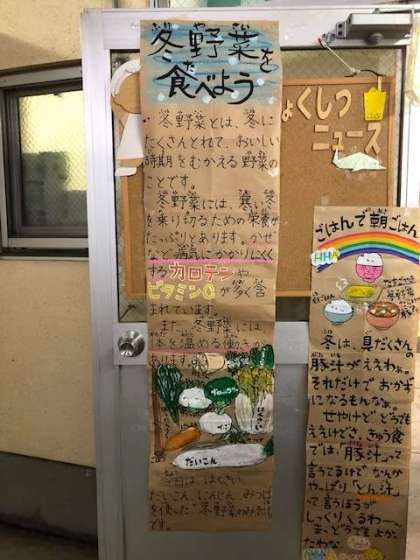 冬野菜を
食べよう
冬野菜とは、冬に
たくさんとれて、おいしい
時期をむかえる野菜の
ことです。
冬野菜には、寒い冬
を乗り切るための栄養が
たっぷりとあります。かぜ
など病気にかかりにくく
するカロテンや
ビタミンCが多く含
まれています。
また、冬野菜には
体を温める働きが
あります。
はくさい
だいこん
今日は、はくさい
だいこん、にんじん、みつば
を使った"冬野菜のみそ
です。
ょくしつ
ニュース
ごはんで朝ごはん
HHA
冬は、具だくさんの
豚汁がええわぁ。
それだけでおかず
になるもんなぁ。
せやけど、どうでも
ええけどさ、きゅう食
では、「豚汁」って
言うてるけど、なんか
やっぱり「とん汁」
って言うほうが
しっくりくるわー
まっどうでもよか
たわな